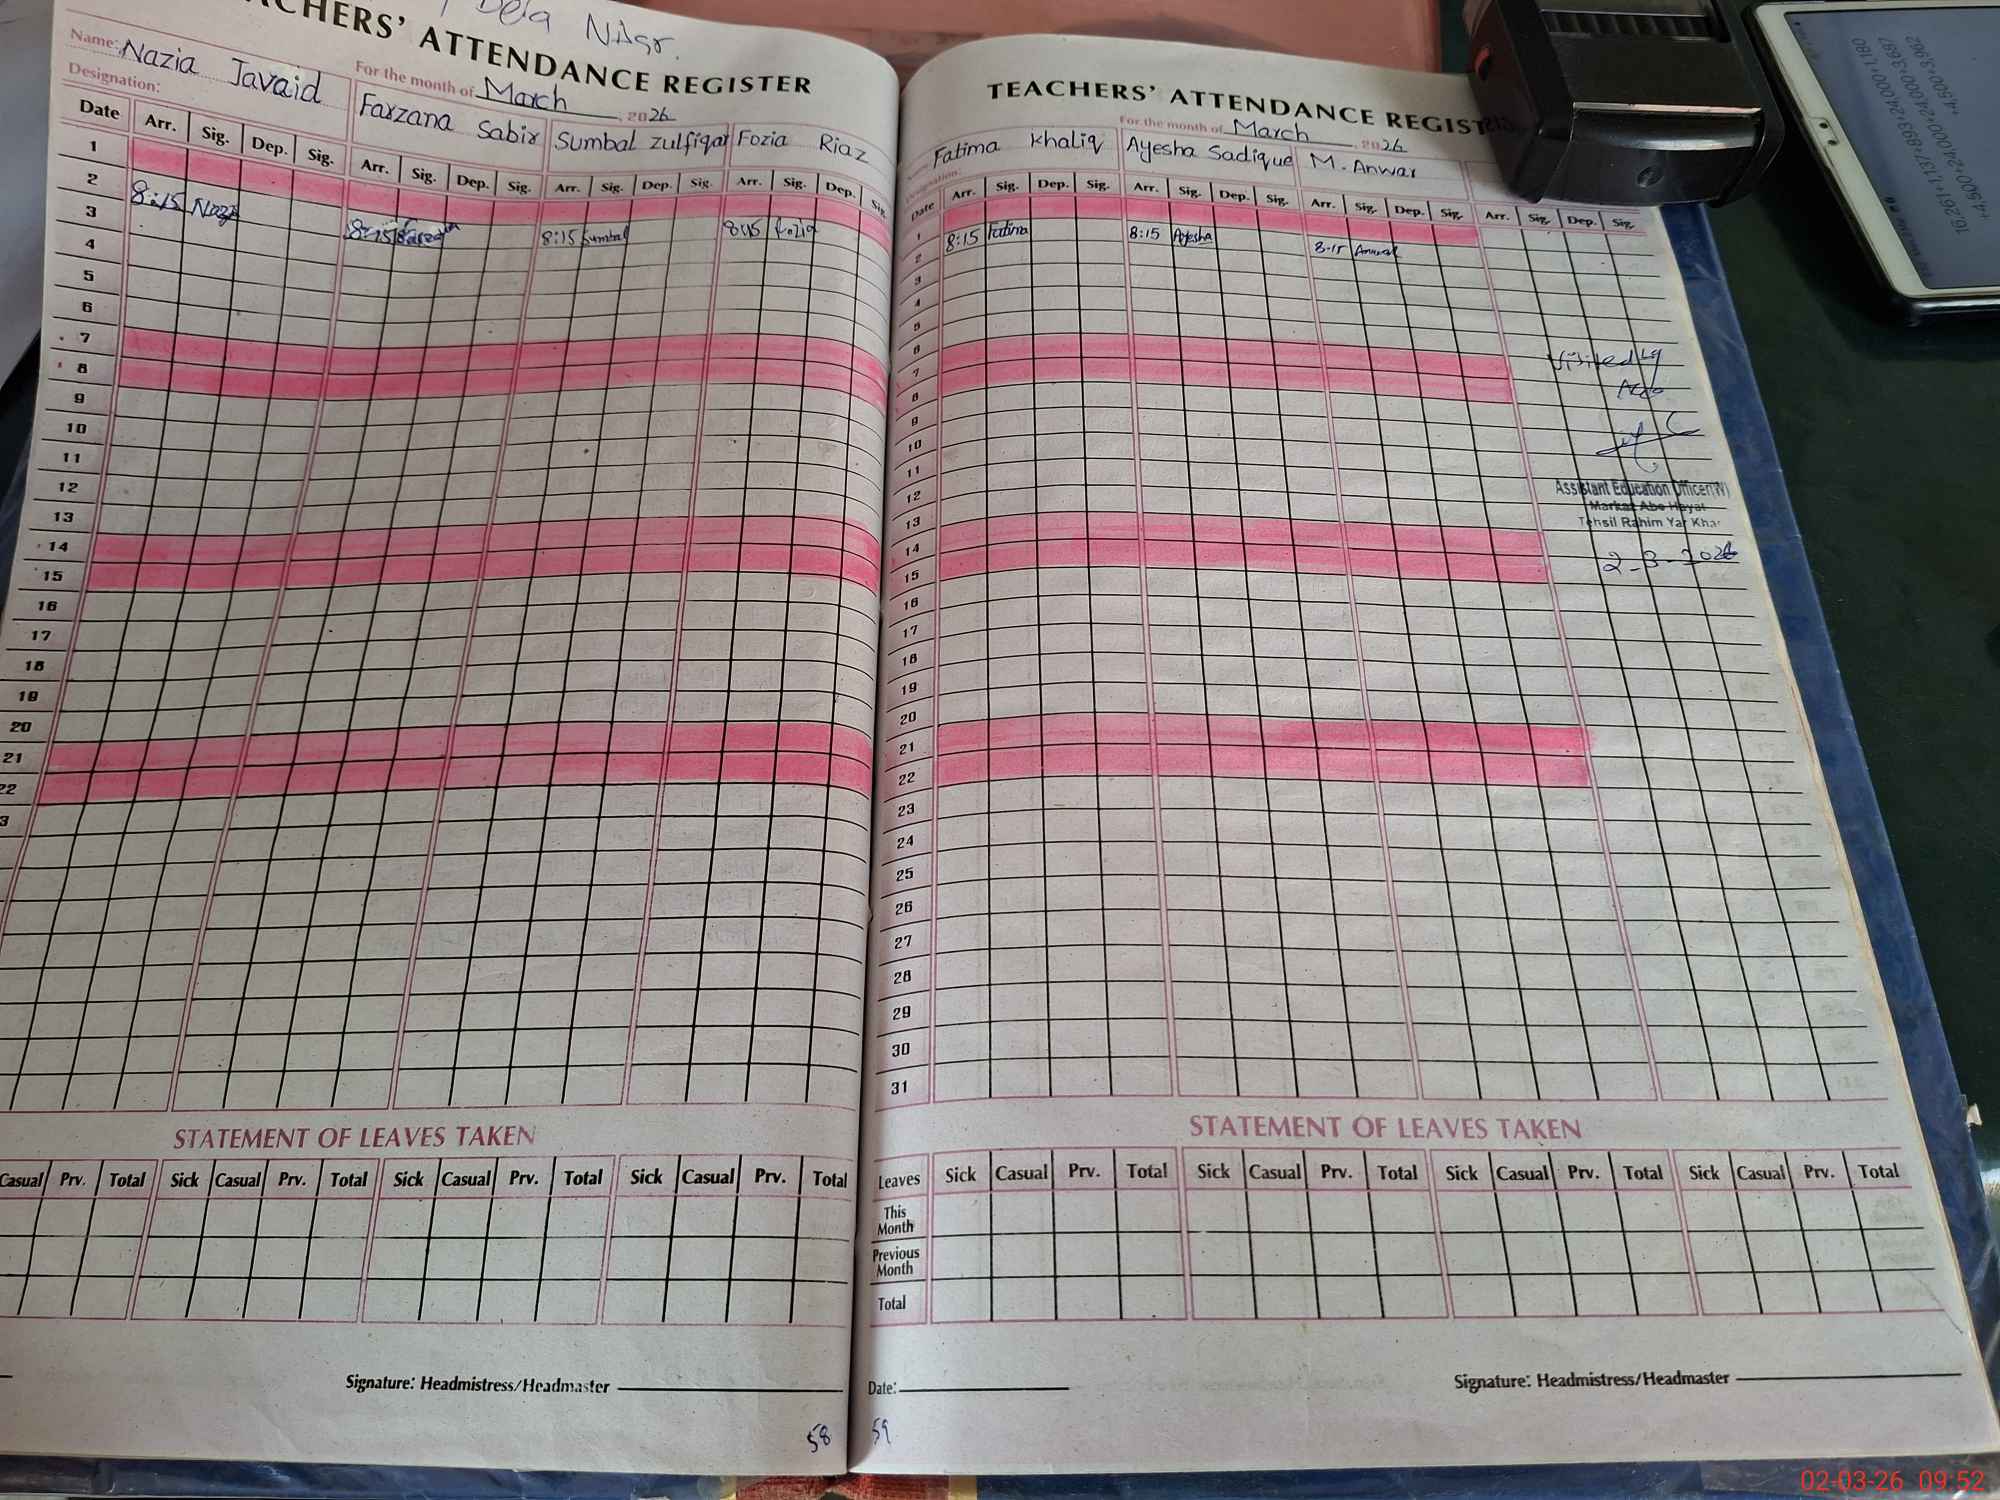 Dera NAsr.
TEACHERS' ATTENDANCE REGISTER
Name: Nazia Javaid
For the month of March, 2026
Designation:
Farzana Sabir
Sumbal zulfiqar
Fozia Riaz
Date Arr. Sig. Dep. Sig. Arr. Sig. Dep. Sig. Arr. Sig. Dep. Sig. Arr. Sig. Dep. Sig.
1
2 8:15 8:15 8:15 Sumbal 8:15 Fozia
3
4
5
6
7
8
9
10
11
12
13
14
15
16
17
18
19
20
21
22
3
STATEMENT OF LEAVES TAKEN
Casual Prv. Total Sick Casual Prv. Total Sick Casual Prv. Total Sick Casual Prv. Total
Signature: Headmistress/Headmaster
58
TEACHERS' ATTENDANCE REGIST
For the month of March, 2026
Fatima khaliq
Ayesha Sadique
M. Anwar
Date Arr. Sig. Dep. Sig. Arr. Sig. Dep. Sig. Arr. Sig. Dep. Sig. Arr. Sig. Dep. Sig.
1
2 8:15 Fatima 8:15 Ayesha 8-15 Anwar
3
4
5
6
7
8
9
10
11
12
13
14
15
16
17
18
19
20
21
22
23
24
25
26
27
28
29
30
31
Visited by
AEO
Assistant Education Officer(W)
Markaz Abe Hayat
Tehsil Rahim Yar Khan
2-3-2026
STATEMENT OF LEAVES TAKEN
Leaves Sick Casual Prv. Total Sick Casual Prv. Total Sick Casual Prv. Total Sick Casual Prv. Total
This Month
Previous Month
Total
Date:
Signature: Headmistress/Headmaster
59
02-03-26 09:52